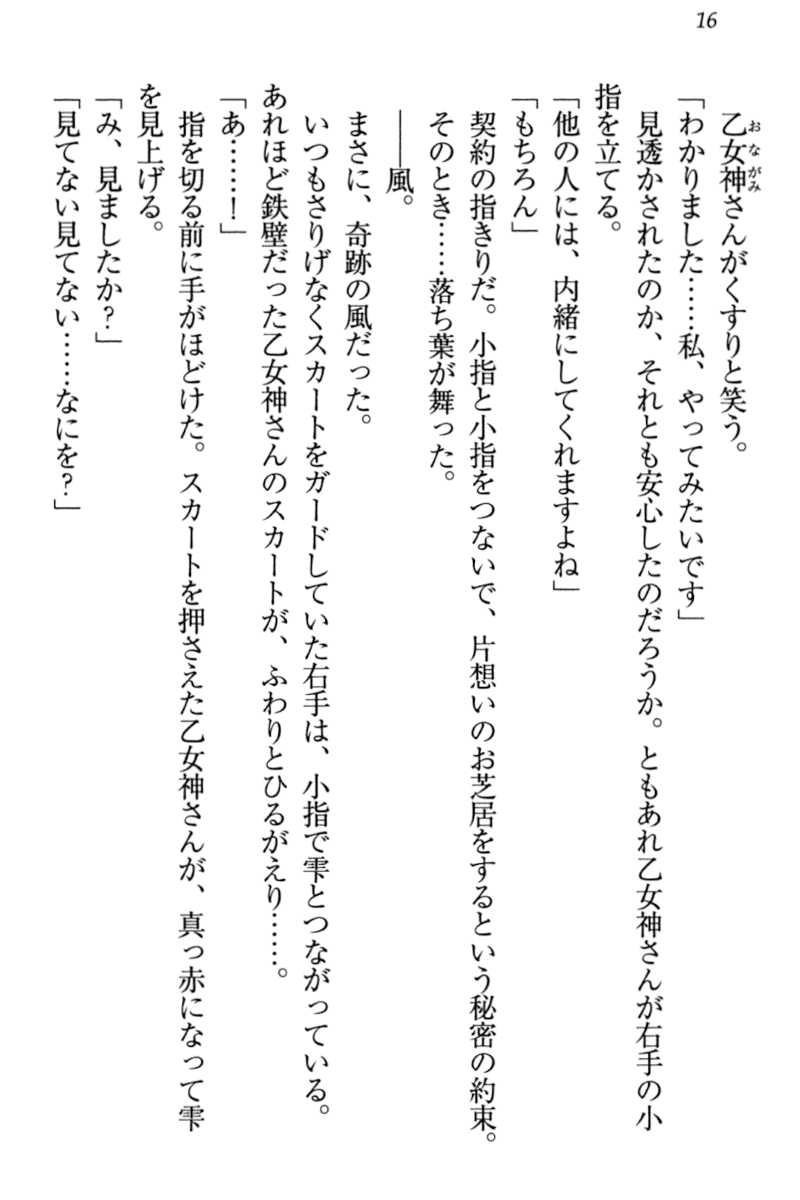 16
乙女神さんがくすりと笑う。
おながみ
「わかりました……私、やってみたいです」
見透かされたのか、それとも安心したのだろうか。ともあれ乙女神さんが右手の小
指を立てる。
「他の人には、内緒にしてくれますよね」
「もちろん」
契約の指きりだ。小指と小指をつないで、片想いのお芝居をするという秘密の約束。
そのとき……落ち葉が舞った。
――風。
まさに、奇跡の風だった。
いつもさりげなくスカートをガードしていた右手は、小指で雫とつながっている。
あれほど鉄壁だった乙女神さんのスカートが、ふわりとひるがえり……。
「あ……！」
指を切る前に手がほどけた。スカートを押さえた乙女神さんが、真っ赤になって雫
を見上げる。
「み、見ましたか？」
「見てない見てない……なにを？」